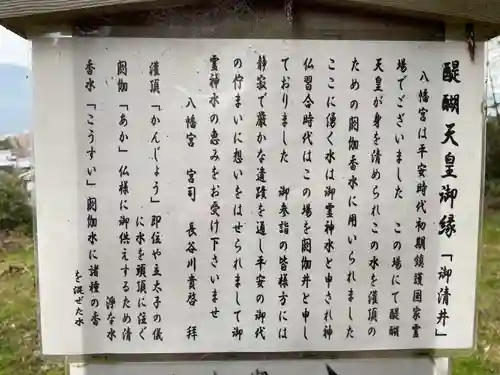 醍醐天皇御縁「御清井」
八幡宮は平安時代初期鎮護国家霊
場でございました　この場にて醍醐
天皇が身を清められこの水を灌頂の
ための閼伽香水に用いられました
ここに湧く水は御霊神水と申され神
仏習合時代はこの場を閼伽井と申し
ておりました　御参詣の皆様方には
静寂で厳かな遺蹟を通し平安の御代
の佇まいに想いをはせられまして御
霊神水の恵みをお受け下さいませ
八幡宮　宮司　長谷川貴啓　拜
灌頂「かんじょう」即位や立太子の儀
に水を頭頂に注ぐ
閼伽「あか」仏様に御供えするため清
浄な水
香水「こうすい」閼伽水に諸種の香
を混ぜた水